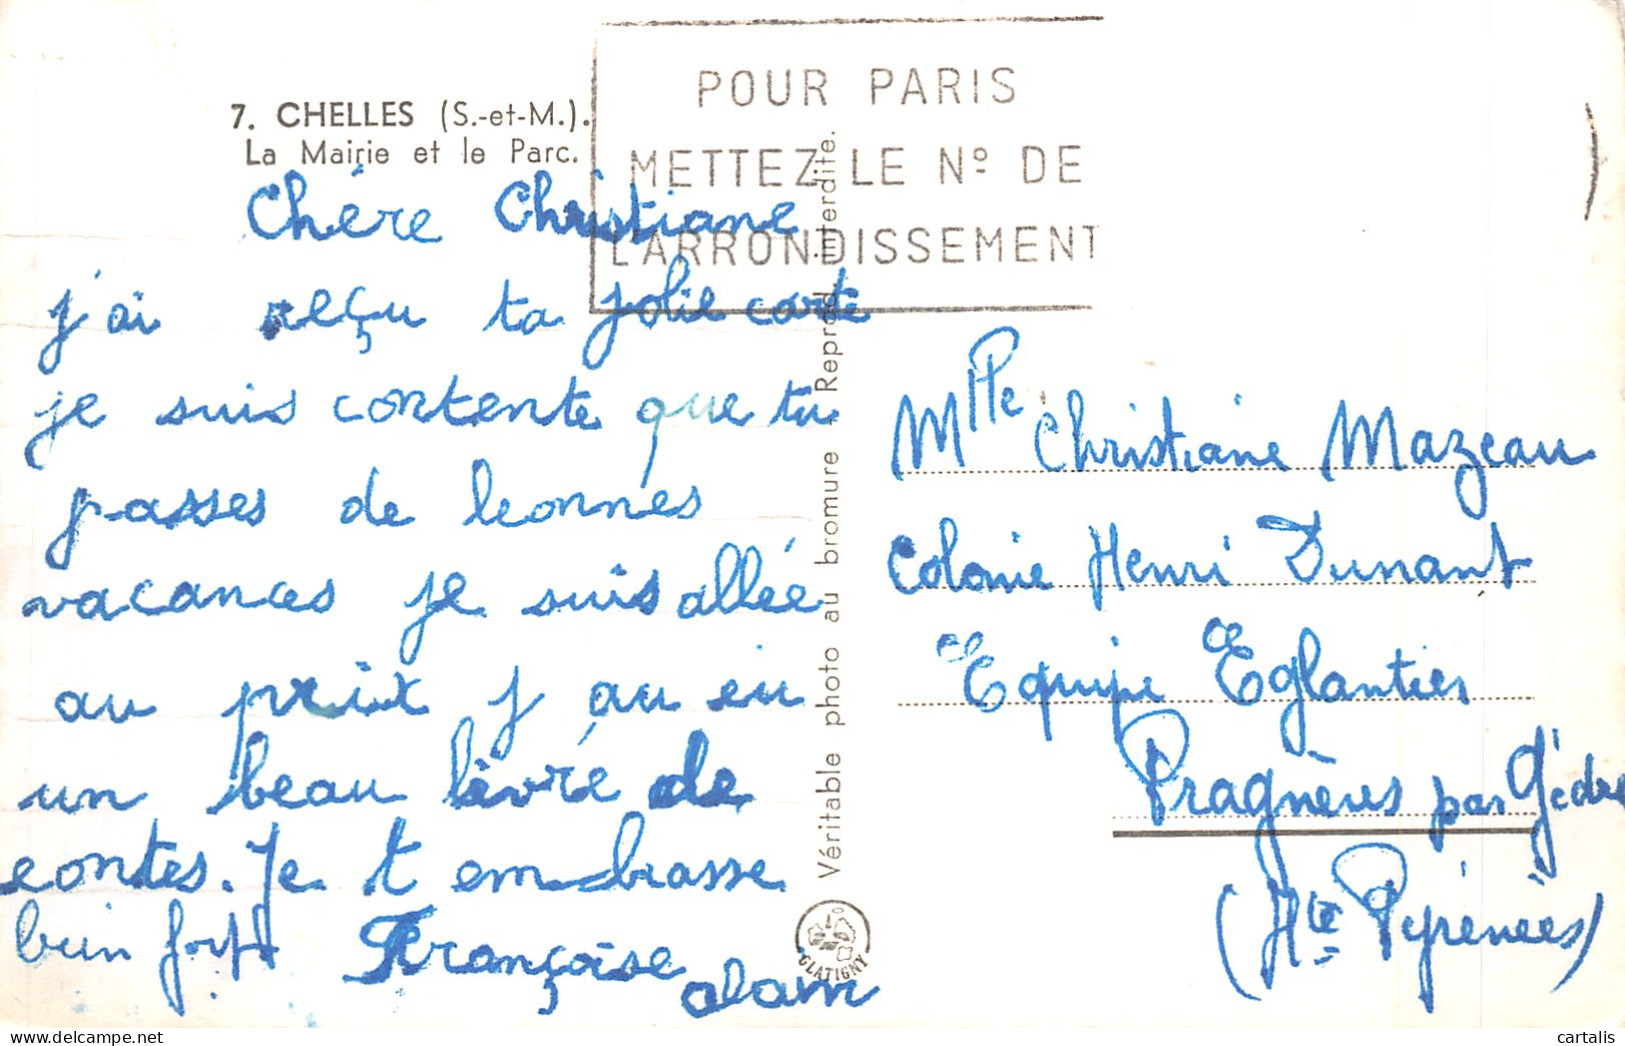 7. CHELLES (S.-et-M.).
La Mairie et le Parc.
POUR PARIS
METTEZ LE Nº DE
L'ARRONDISSEMENT
Chère Christiane
j'ai reçu ta jolie carte
je suis contente que tu
passes de bonnes
vacances je suis allée
au prix j au eu
un beau livré de
contes. Je t embrasse
bien fort Françoise
alain
Véritable photo au bromure - Reprod. interdite.
GLATIGNY
Mlle Christiane Mazeau
Colonie Henri Dunant
Equipe Eglantier
Pragnères par Gèdre
(Hte Pyrénées)
cartalis